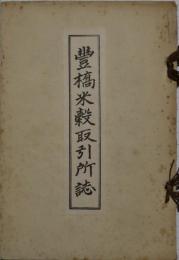 豐橋米穀取引所誌